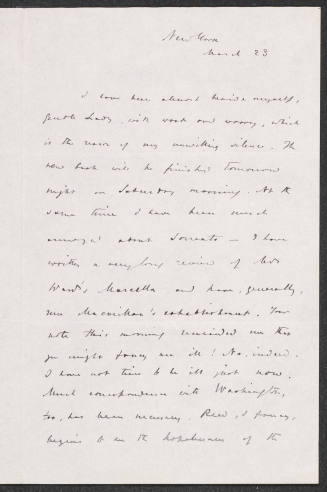 New York
March 23
I have been almost beside myself,
gentle Lady, with work and worry, which
is the reason of my unwilling silence. The
new book will be finished tomorrow
night or Saturday morning. At the
same time I have been much
annoyed about Sorrento — I have
written a very long review of Mrs
Ward's Marcella and have, generally,
run Macmillan's establishment. Your
note this morning reminded me that
you might fancy me ill! No, indeed.
I have not time to be ill just now.
Much correspondence with Washington,
too, has been necessary. Reed, I fancy,
begins to see the hopelessness of the